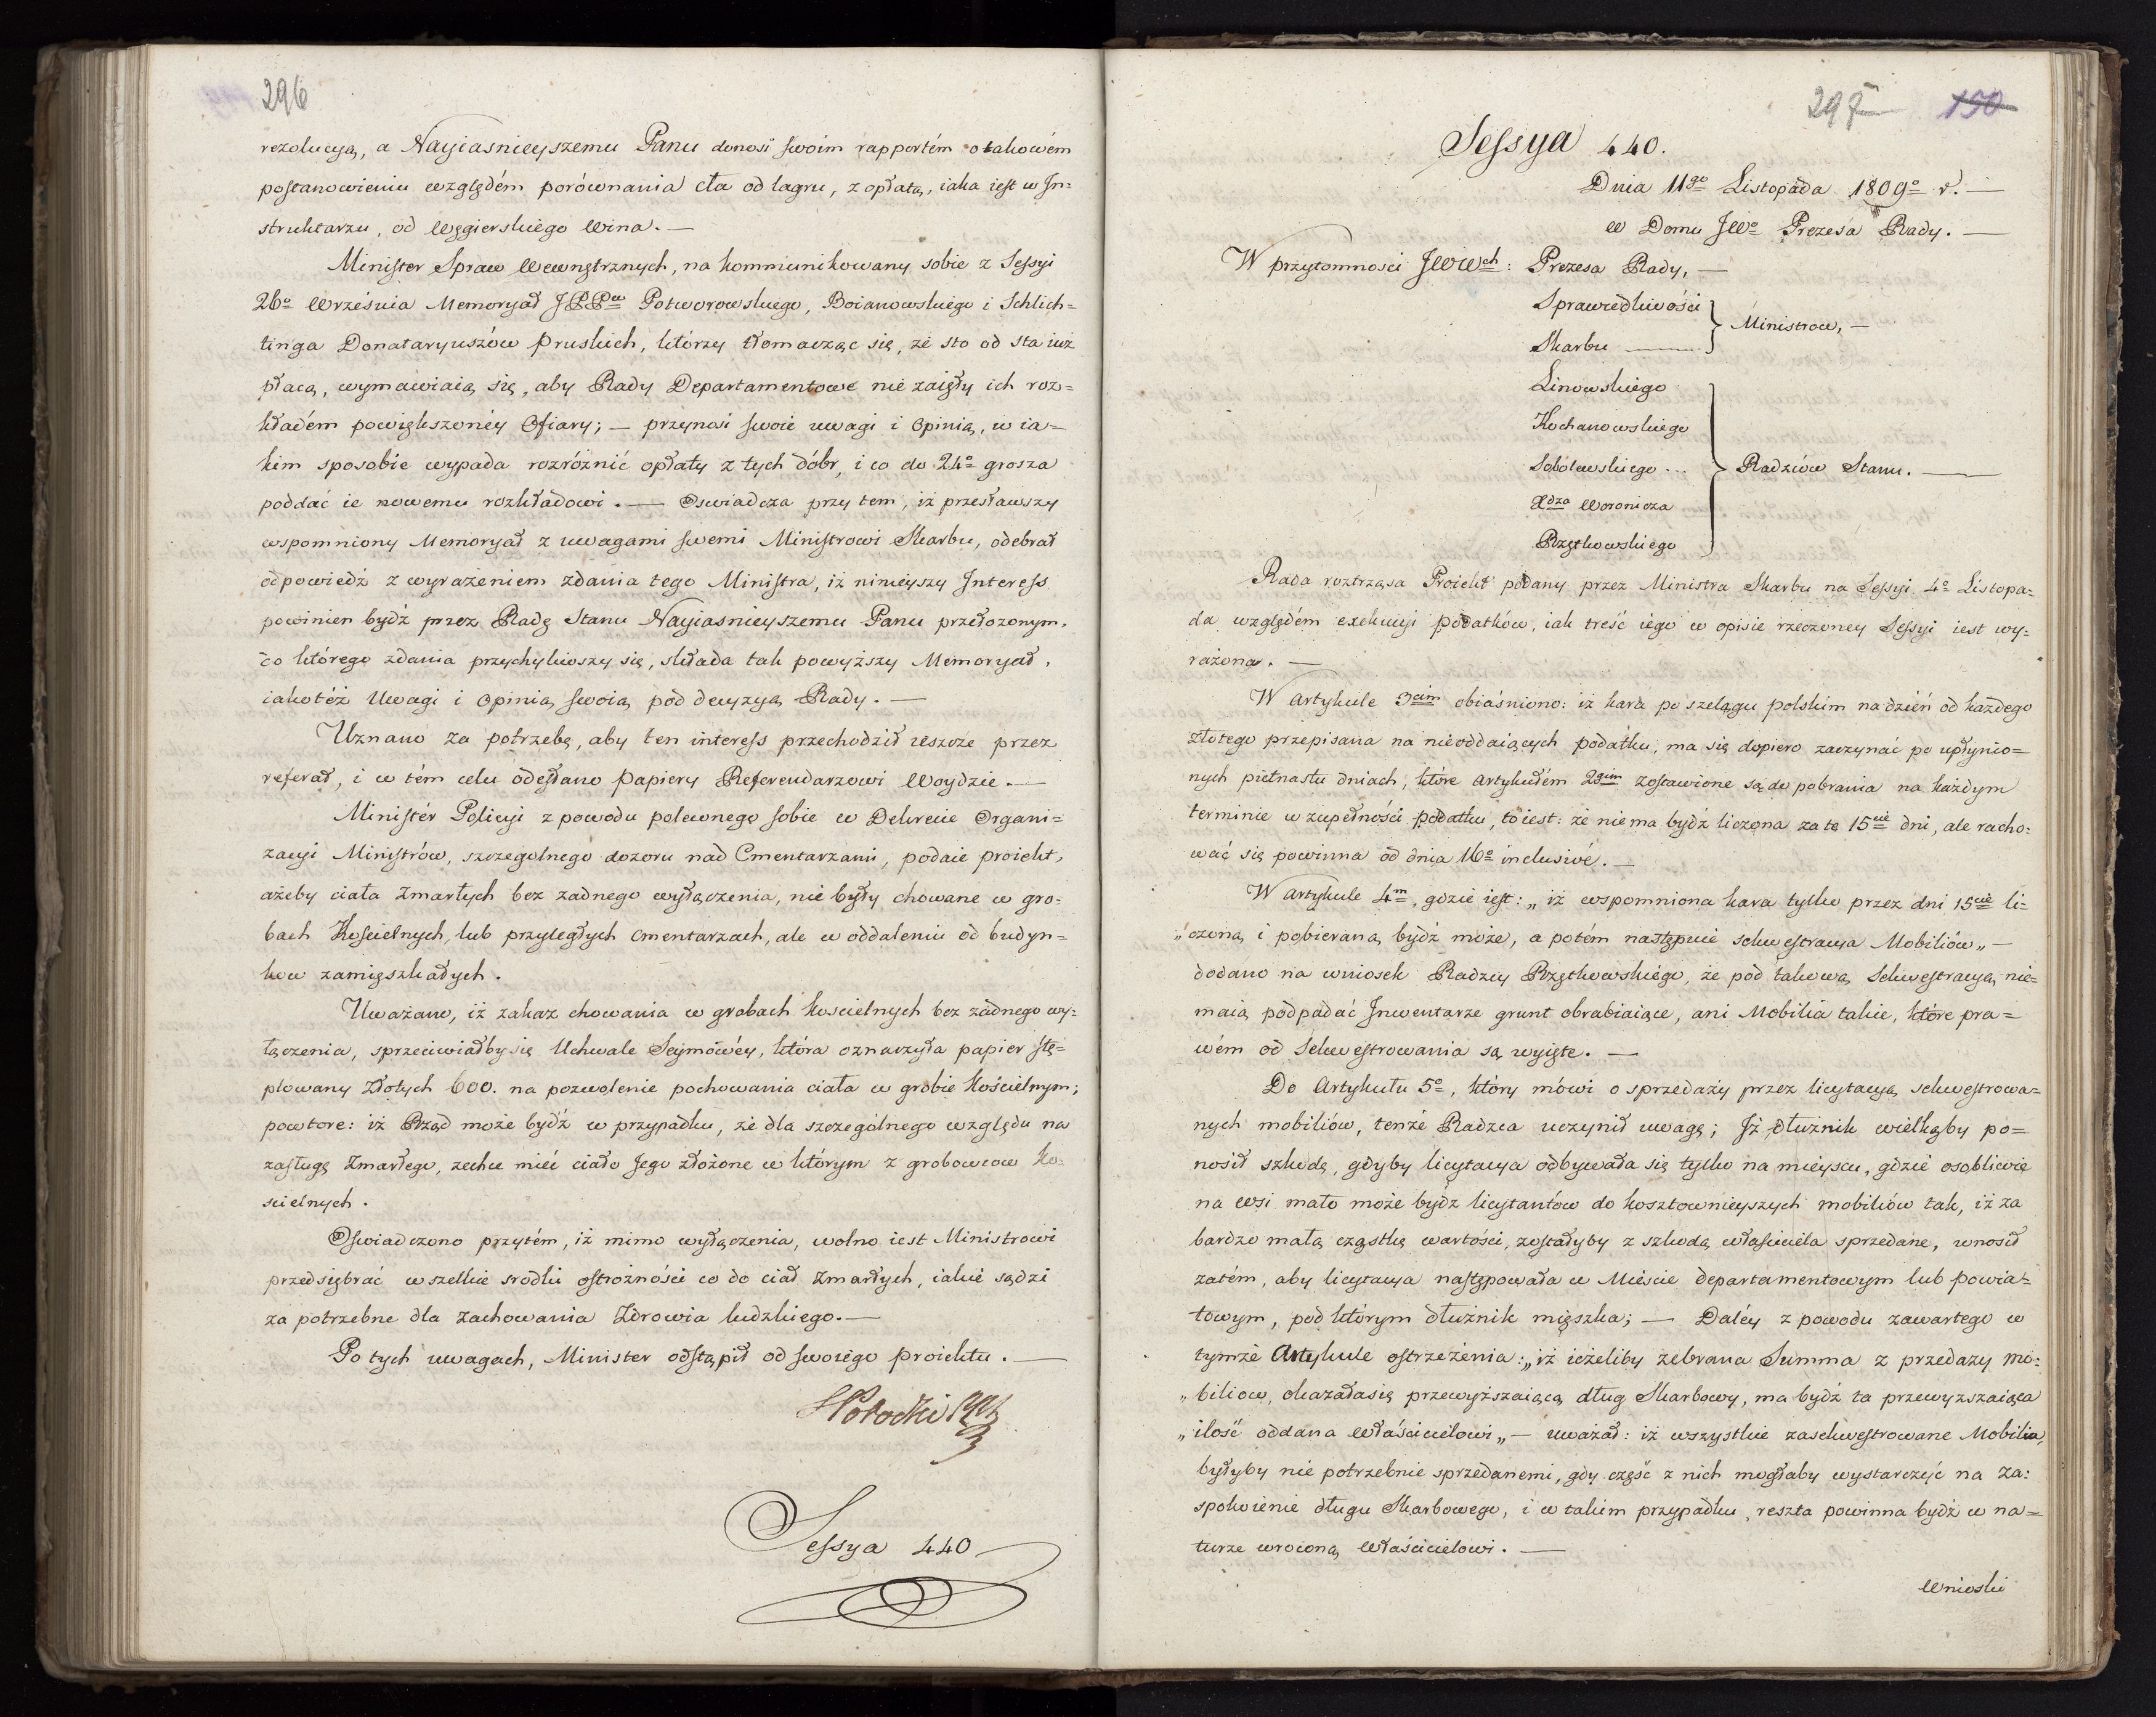 296
rezolucyą, a Nayiasnieyszemu Panu donosi swoim rapportém o takowém
postanowieniu względém porównania cła od lagru, z opłatą, iaka iest w In=
struktarzu, od Węgierskiego Wina. —
Minister Spraw Wewnętrznych, na kommunikowany sobie z Sessyi
26º Września Memoryał JPPów Potworowskiego, Boianowskiego i Schlich=
tinga Donataryuszów Pruskich, którzy tłomacząc się, że sto od sta iuż
płacą, wymawiaią się, aby Rady Departamentowe nie zaięły ich roz=
kładém powiększonéy Ofiary; — przynosi swoie uwagi i Opinią, w ia=
kim sposobie wypada rozróżnić opłaty z tych dóbr, i co do 24º grosza
poddać ie nowemu rozkładowi. — Oswiadcza przy tem, iż przesławszy
wspomniony Memoryał z uwagami swemi Ministrowi Skarbu, odebrał
odpowiedź z wyrażeniem zdania tego Ministra, iż ninieyszy Interess
powinien bydź przez Radę Stanu Nayiasnieyszemu Panu przełożonym,
do którego zdania przychyliwszy się, składa tak powyższy Memoryał,
iakotéż Uwagi i Opinią swoią pod decyzyą Rady. —
Uznano za potrzebę, aby ten interess przechodził ieszcze przez
referat, i w tém celu odesłano papiery Referendarzowi Woydzie. —
Ministér Policyi z powodu poleconego sobie w Dekrecie Organi=
zacyi Ministrów, szczególnego dozoru nad Cmentarzami, podaie proiekt,
ażeby ciała zmarłych bez żadnego wyłączenia, nie były chowane w gro=
bach Kościelnych, lub przyległych cmentarzach, ale w oddaleniu od budyn=
kow zamięszkałych.
Uważano, iż zakaz chowania w grobach kościelnych bez żadnego wy=
łączenia, sprzeciwiałby się Uchwale Seymowéy, która oznaczyła papier stę=
plowany Złotych 600. na pozwolenie pochowania ciała w grobie kościelnym;
powtore: iż Rząd może bydź w przypadku, że dla szczególnego względu na
zasługę Zmarłego, zechce mieć ciało Jego złożone w którym z grobowcow ko=
scielnych.
Oswiadczono przytém, iż mimo wyłączenia, wolno iest Ministrowi
przedsiębrać wszelkie srodki ostrożności co do ciał zmarłych, iakie sądzi
za potrzebne dla zachowania Zdrowia ludzkiego. —
Po tych uwagach, Minister odstąpił od swoiego proiektu. —
Sessya 440
297 150
Sessya 440.
Dnia 11go Listopada 1809º r. —
w Domu JWo Prezesa Rady. —
W przytomnosci JWWch: Prezesa Rady, —
Sprawiedliwości
Skarbu — Ministrow, —
Linowskiego
Kochanowskiego
Sobolewskiego ... Radzców Stanu. —
Xdza Woronicza
Rzętkowskiego
Rada roztrząsa Proiekt podany przez Ministra Skarbu na Sessyi 4º Listopa=
da względém exekucyi podatków, iak treść iego w opisie rzeczoney Sessyi iest wy=
rażona. —
W Artykule 3cim obiaśniono: iż kara po szelągu polskim na dzień od każdego
złotego przepisana na nieoddaiących podatku, ma się dopiero zaczynać po upłynio=
nych piętnastu dniach, które Artykułém 2gim zostawione są do pobrania na każdym
terminie w zupełności podatku, to iest: że nie ma bydź liczona za te 15cie dni, ale racho=
wać się powinna od dnia 16º inclusivé. —
W Artykule 4m, gdzie iest: „ iż wspomniona kara tylko przez dni 15cie li=
„czoną i pobieraną bydź może, a potém nastąpuie sekwestracya Mobiliów „ —
dodano na wniosek Radzcy Rzętkowskiégo, że pod takową Sekwestracyą nie=
maią podpadać Inwentarze grunt obrabiaiące, ani Mobilia takie, które pra=
wém od Sekwestrowania są wyięte. —
Do Artykułu 5º, który mówi o sprzedaży przez licytacyą sekwestrowa=
nych mobiliów, tenże Radzca uczynił uwagę; Iż dłużnik wielkąby po=
nosił szkodę, gdyby licytacya odbywała się tylko na mieyscu, gdzie osobliwie
na wsi mało może bydz licytantów do kosztownieyszych mobiliów tak, iż za
bardzo małą cząstkę wartości, zostałyby z szkodą właściciela sprzedane, wnosił
zatém, aby licytacya następowała w Mieście departamentowym lub powia=
towym, pod którym dłużnik mięszka; — Daléy z powodu zawartego w
tymże Artykule ostrzeżenia: „ iż ieżeliby zebrana Summa z przedaży mo=
„ biliow, okazała się przewyższaiącą dług Skarbowy, ma bydź ta przewyzszaiąca
„ ilość oddana Właścicielowi „ — uważał: iż wszystkie zasekwestrowane Mobilia,
byłyby nie potrzebnie sprzedanemi, gdy część z nich mogłaby wystarczyć na za=
spokoienie długu Skarbowego, i w takim przypadku, reszta powinna bydź w na=
turze wróconą Właścicielowi. —
Wnioski